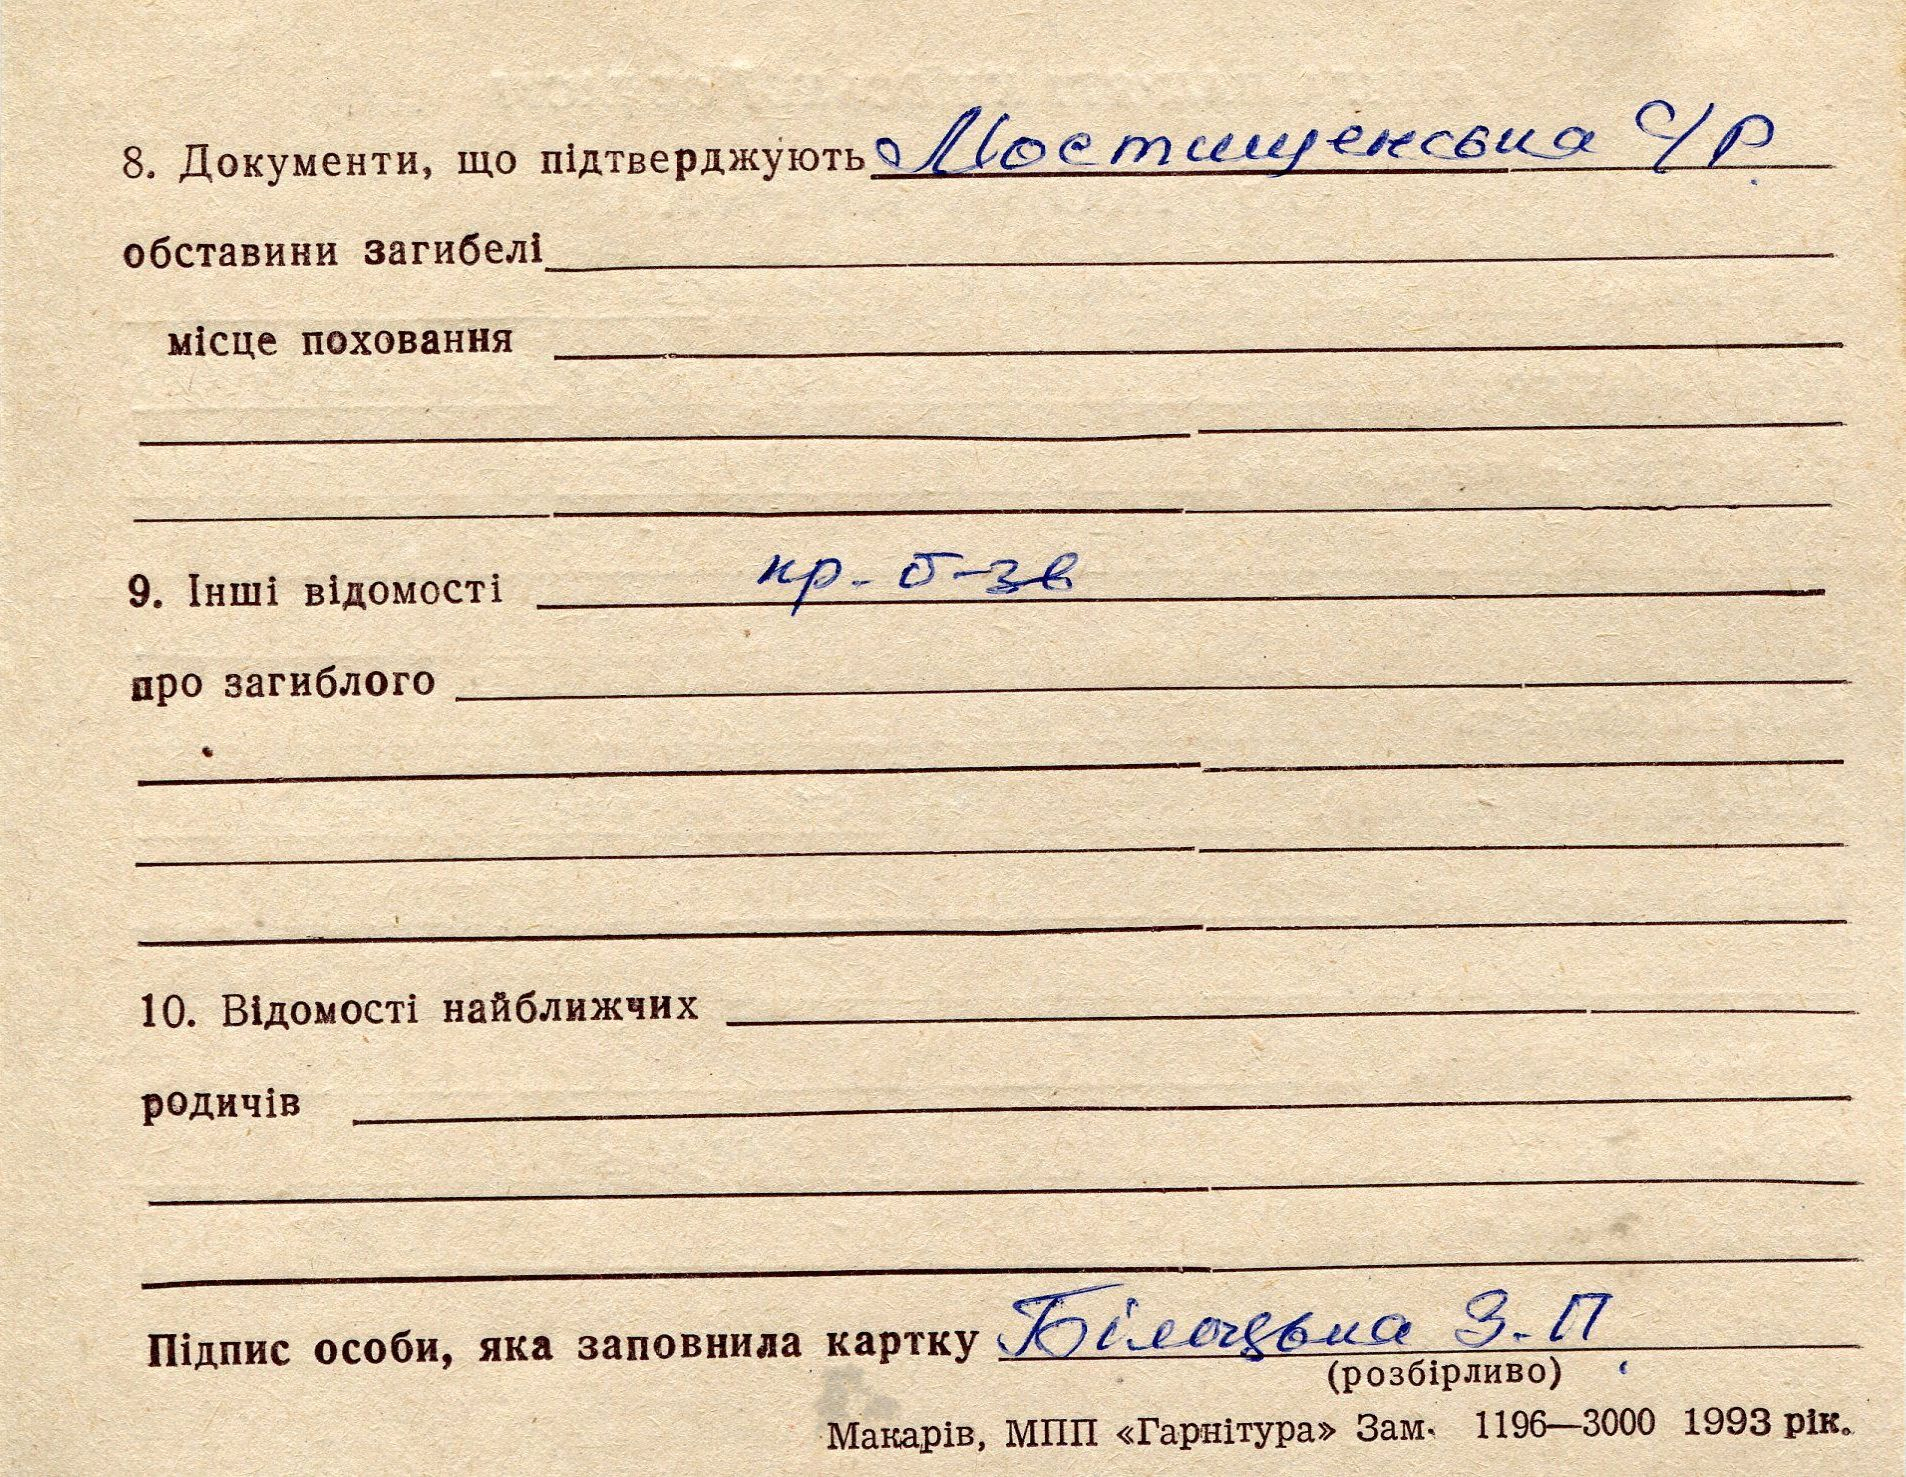 8. Документи, що підтверджують Мостищенська с/р
обставини загибелі
місце поховання
9. Інші відомості кр. б-зв
про загиблого
10. Відомості найближчих
родичів
Підпис особи, яка заповнила картку Білоцька З.П
(розбірливо)
Макарів, МПП «Гарнітура» Зам. 1196—3000 1993 рік.